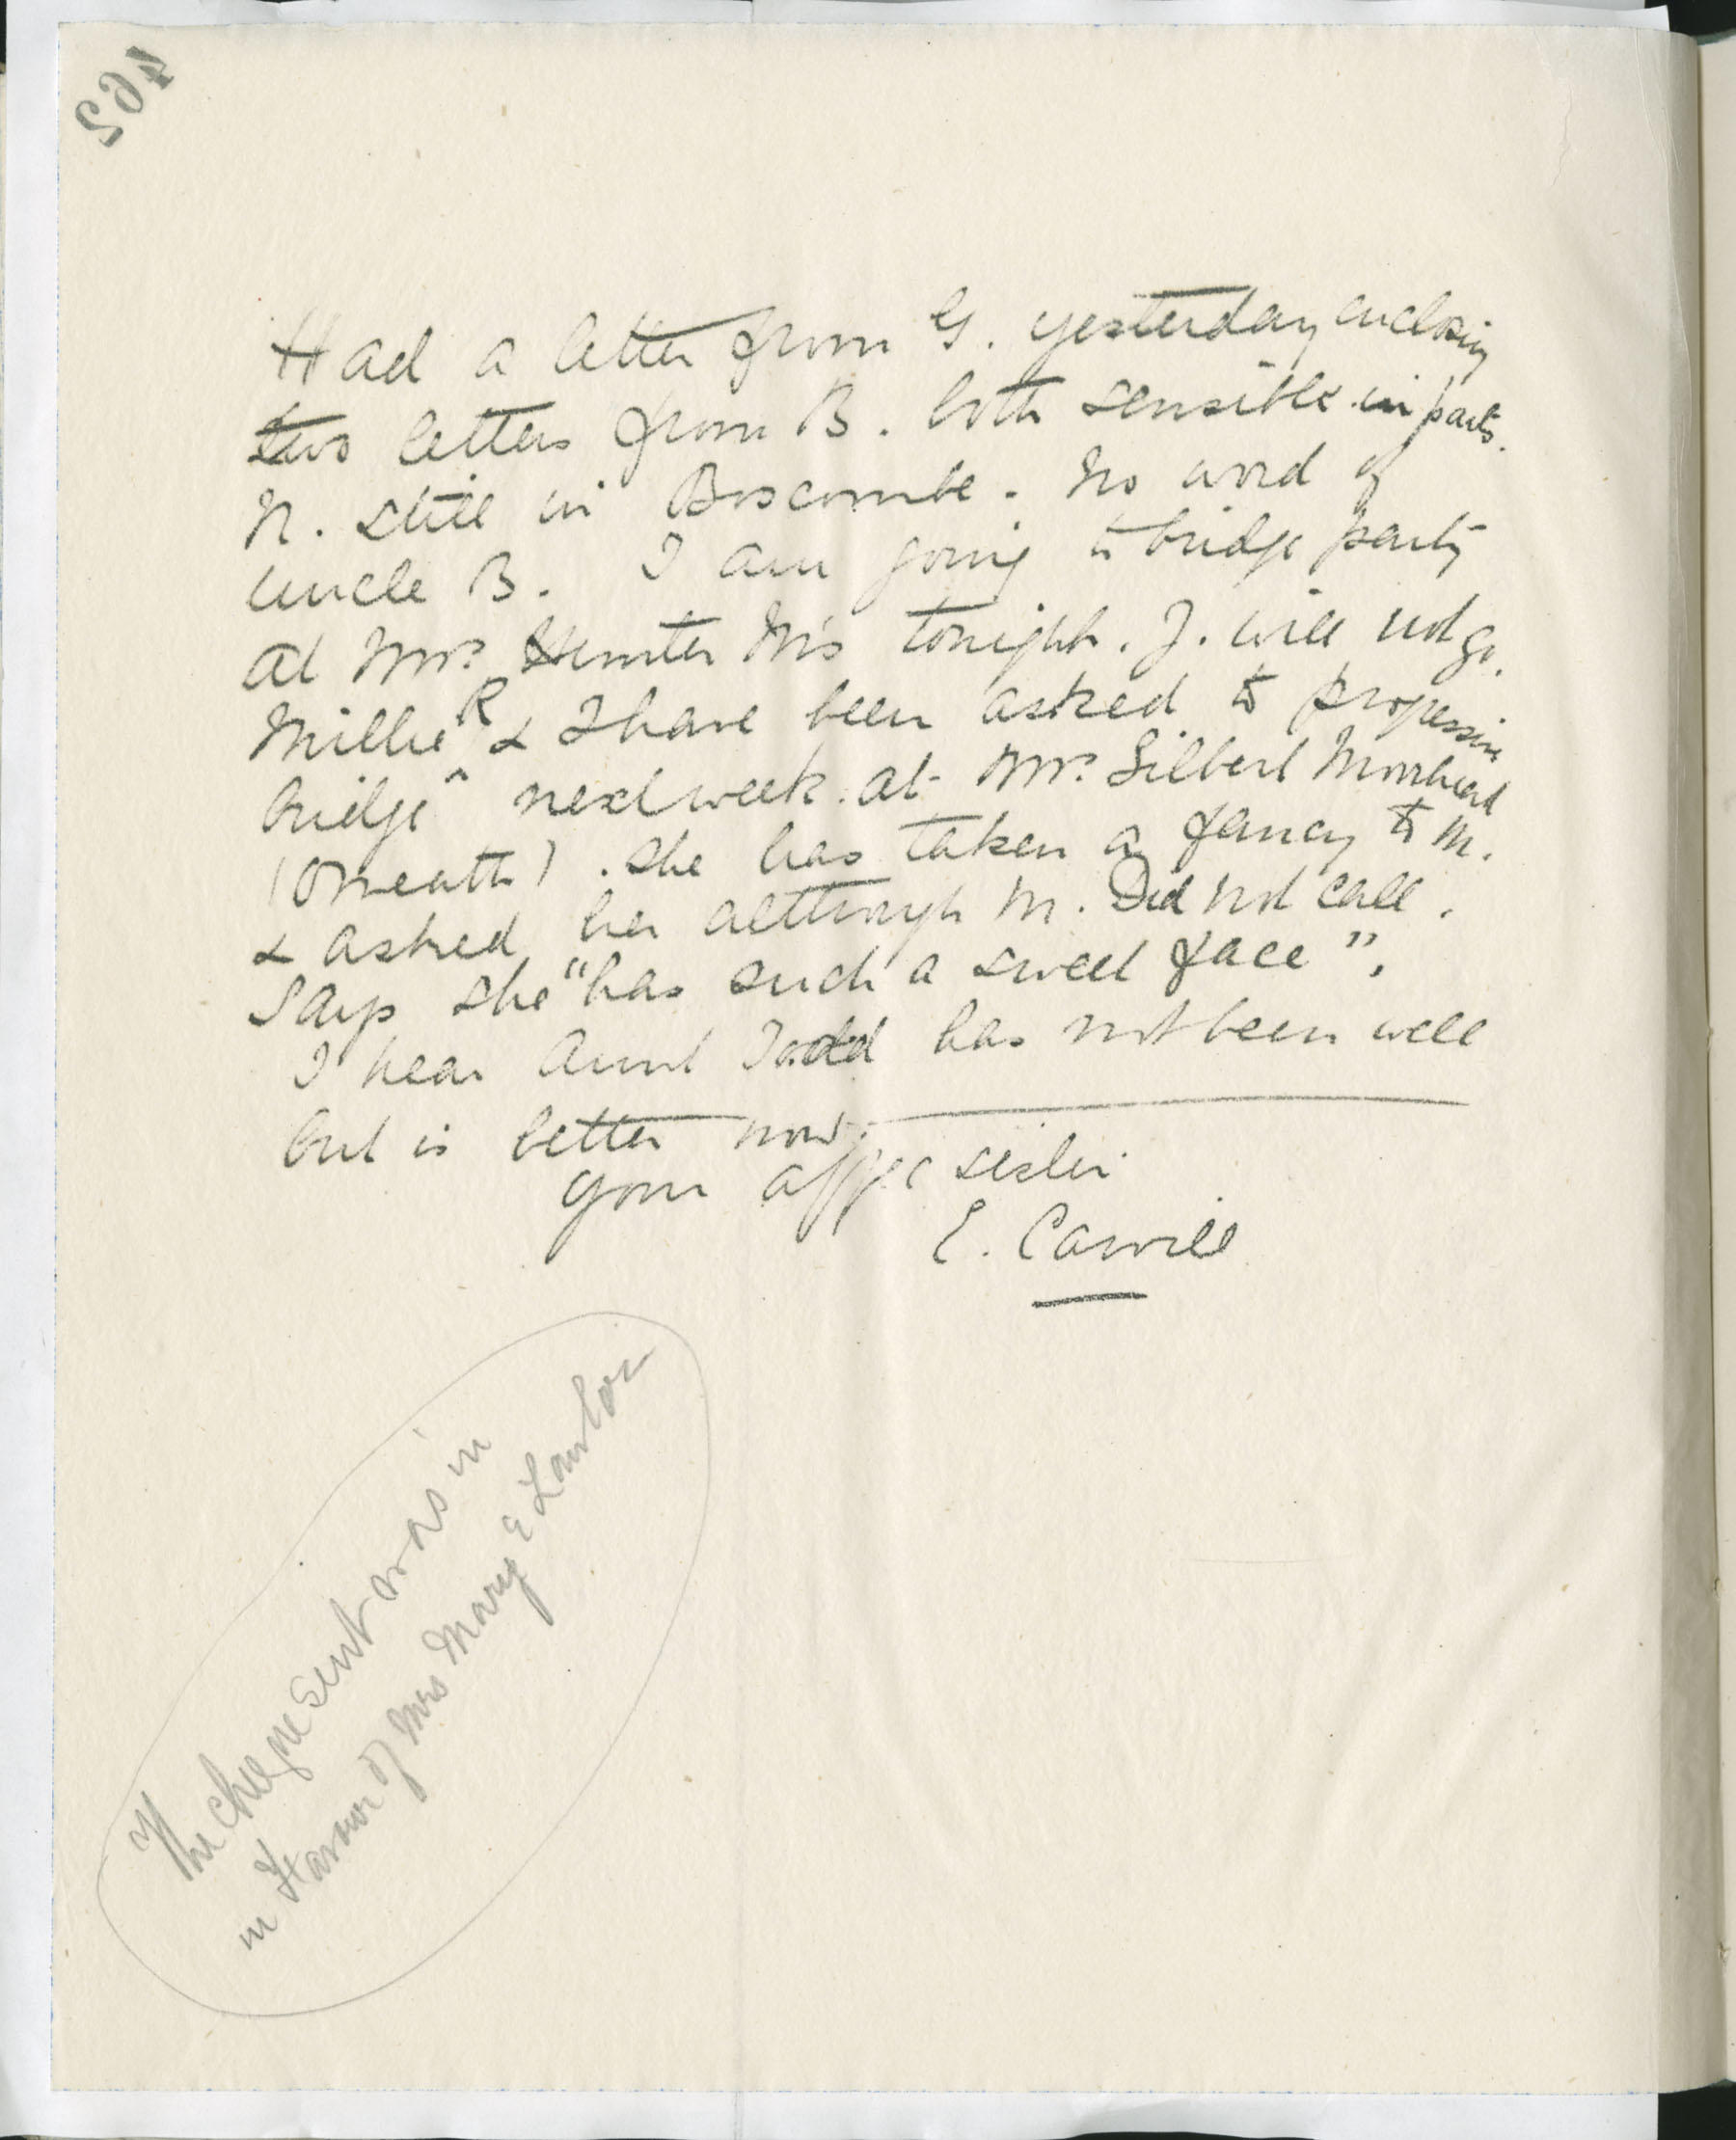 462
Had a letter from G. yesterday enclosing
two letters from B. both sensible in parts.
N. still in Boscombe. No word of
Uncle B. I am going to bridge party
at Mrs. Hunter M's tonight. J. will not go.
Millie R & I have been asked to progressive
bridge ^ next week. at Mrs. Gilbert Moorhead
(Omeath). She has taken a fancy to M.
& asked her although M. Did not call.
Says she "has such a sweet face".
I hear Aunt Todd has not been well
but is better now.
Your affec sister
E. Carvill
The cheque sent was in
in Favour of Mrs Mary E Lawlor